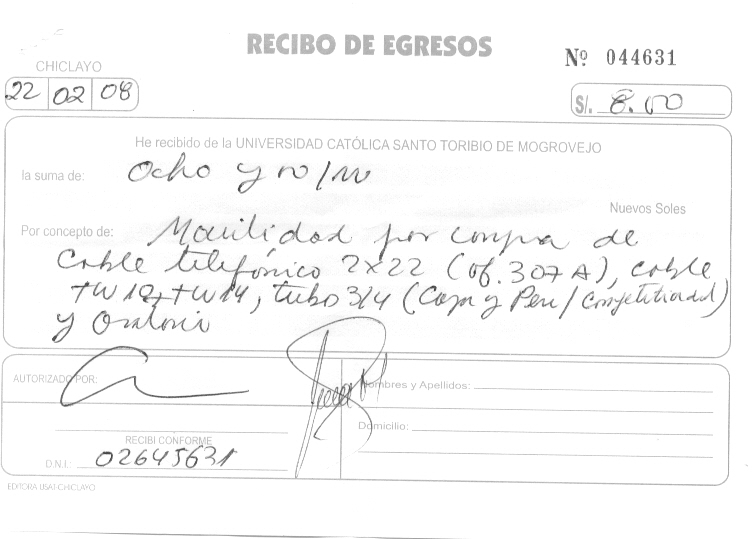 RECIBO DE EGRESOS
Nº 044631
CHICLAYO
22 02 08
S/. 8.00
He recibido de la UNIVERSIDAD CATÓLICA SANTO TORIBIO DE MOGROVEJO
la suma de: Ocho y 00/100
Nuevos Soles
Por concepto de: Movilidad por compra de
cable telefónico 2x22 (of. 307 A), cable
TW 12, TW 14, tubo 3/4 (Copa y Peru / Competitividad)
y Oratoria
AUTORIZADO POR:
Nombres y Apellidos:
Domicilio:
RECIBI CONFORME
D.N.I.: 02645631
EDITORA USAT-CHICLAYO